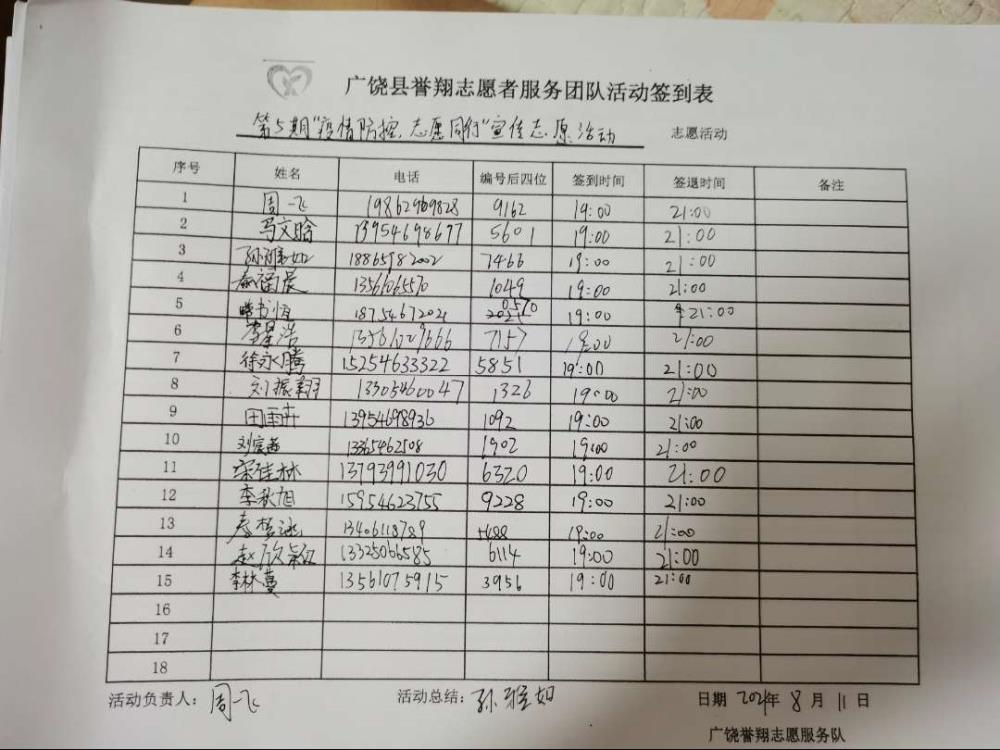 广饶县誉翔志愿者服务团队活动签到表
第5期"疫情防控,志愿同行"宣传志愿活动 志愿活动
序号 姓名 电话 编号后四位 签到时间 签退时间 备注
1 周一飞 19862969828 9162 19:00 21:00
2 马文晗 13954698677 5601 19:00 21:00
3 孙雅如 18865982002 7466 19:00 21:00
4 1356065570 1049 19:00 21:00
5 18754672021 0570 19:00 21:00
6 李星浩 7157 19:00 21:00
7 徐永腾 15254633322 5851 19:00 21:00
8 刘振翔 13305460047 1326 19:00 21:00
9 田雨卉 13954698936 1092 19:00 21:00
10 13365462508 1902 19:00 21:00
11 宋佳林 13793991030 6320 19:00 21:00
12 李秋旭 15954623755 9228 19:00 21:00
13 13406118789 5488 19:00 21:00
14 赵欣颖 13325066585 6114 19:00 21:00
15 李林蔓 13561075915 3956 19:00 21:00
16
17
18
活动负责人: 周一飞 活动总结: 孙雅如 日期 2021年 8 月 11 日
广饶誉翔志愿服务队